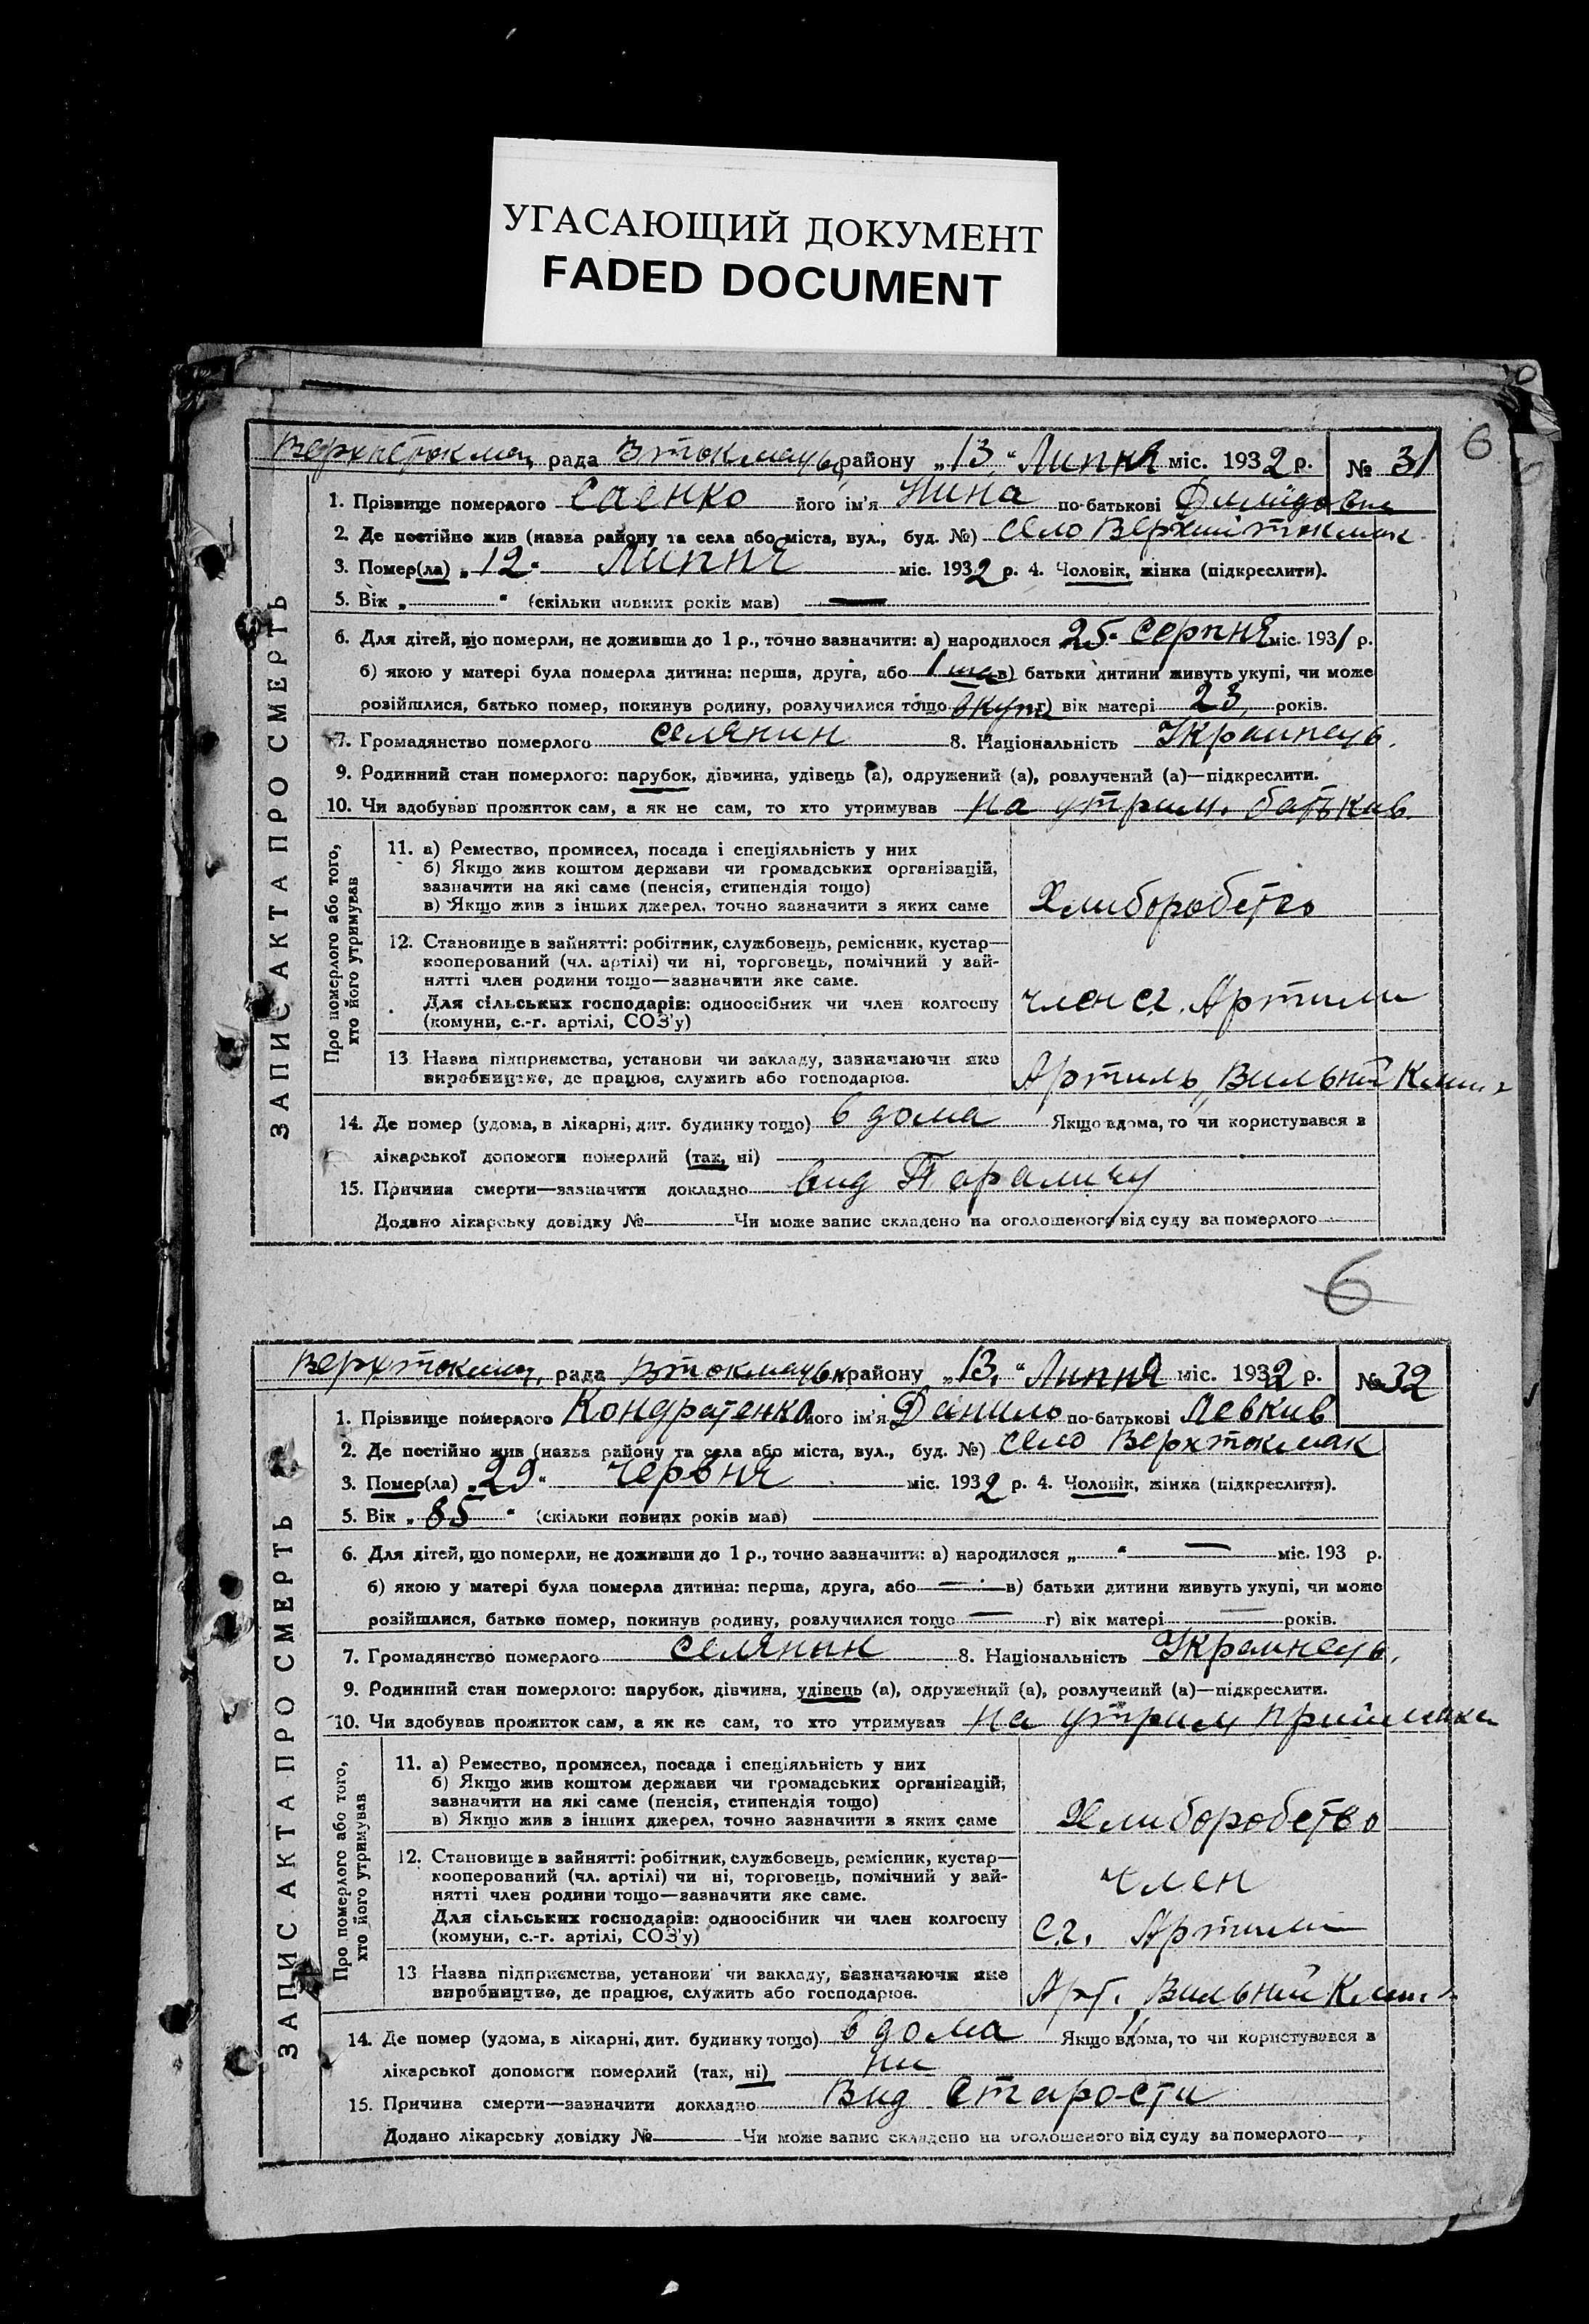 УГАСАЮЩИЙ ДОКУМЕНТ
FADED DOCUMENT
6
рада Втокмацьк району „13“ Липня міс. 1932 р. № 31
1. Прізвище померлого Саенко його ім'я Нина по-батькові
2. Де постійно жив (назва району та села або міста, вул., буд. №) село Верхній токмак
3. Помер(ла) „12“ Липня міс. 1932 р. 4. Чоловік, жінка (підкреслити).
5. Вік „ “ (скільки повних років мав) —
6. Для дітей, що померли, не доживши до 1 р., точно зазначити: а) народилося 25 Серпня міс. 1931 р.
б) якою у матері була померла дитина: перша, друга, або 1ша в) батьки дитини живуть укупі, чи може
розійшлися, батько помер, покинув родину, розлучилися тощо вкупі г) вік матері 23, років.
7. Громадянство померлого селянин 8. Національність Украинець.
9. Родинний стан померлого: парубок, дівчина, удівець (а), одружений (а), розлучений (а)—підкреслити.
10. Чи здобував прожиток сам, а як не сам, то хто утримував На утрим. батькив
ЗАПИС АКТА ПРО СМЕРТЬ
Про померлого або того,
хто його утримував
11. а) Ремество, промисел, посада і спеціяльність у них
б) Якщо жив коштом держави чи громадських організацій,
зазначити на які саме (пенсія, стипендія тощо)
в) Якщо жив з інших джерел, точно зазначити з яких саме
Хлиборобство
12. Становище в зайнятті: робітник, службовець, ремісник, кустар—
кооперований (чл. артілі) чи ні, торговець, помічний у зай-
нятті член родини тощо—зазначити яке саме.
Для сільських господарів: одноосібник чи член колгоспу
(комуни, с.-г. артілі, СОЗ'у)
член сг. Артили
13 Назва підприємства, установи чи закладу, зазначаючи яке
виробництво, де працює, служить або господарює.
Артиль „Вильний
14. Де помер (удома, в лікарні, дит. будинку тощо) в дома Якщо вдома, то чи користувався в
лікарської допомоги померлий (так, ні)
15. Причина смерти—зазначити докладно вид Параличу
Додано лікарську довідку № Чи може запис складено на оголошеного від суду за померлого
6
Верхтокмац, рада Втокмацьк району „13“ Липня міс. 1932 р. № 32
1. Прізвище померлого Кондратенко його ім'я Данило по-батькові Левкив
2. Де постійно жив (назва району та села або міста, вул., буд. №) село Верхтокмак
3. Помер(ла) „29“ Червня міс. 1932 р. 4. Чоловік, жінка (підкреслити).
5. Вік „85“ (скільки повних років мав)
6. Для дітей, що померли, не доживши до 1 р., точно зазначити: а) народилося „ “ — міс. 193 р.
б) якою у матері була померла дитина: перша, друга, або — в) батьки дитини живуть укупі, чи може
розійшлися, батько помер, покинув родину, розлучилися тощо — г) вік матері — років.
7. Громадянство померлого селянин 8. Національність Украинець.
9. Родинний стан померлого: парубок, дівчина, удівець (а), одружений (а), розлучений (а)—підкреслити.
10. Чи здобував прожиток сам, а як не сам, то хто утримував На утрим приймака
ЗАПИС АКТА ПРО СМЕРТЬ
Про померлого або того,
хто його утримував
11. а) Ремество, промисел, посада і спеціяльність у них
б) Якщо жив коштом держави чи громадських організацій,
зазначити на які саме (пенсія, стипендія тощо)
в) Якщо жив з інших джерел, точно зазначити з яких саме
Хлиборобство
12. Становище в зайнятті: робітник, службовець, ремісник, кустар—
кооперований (чл. артілі) чи ні, торговець, помічний у зай-
нятті член родини тощо—зазначити яке саме.
Для сільських господарів: одноосібник чи член колгоспу
(комуни, с.-г. артілі, СОЗ'у)
член
с.г. Артили
13 Назва підприємства, установи чи закладу, зазначаючи яке
виробництво, де працює, служить або господарює.
Арт. „Вильний
14. Де помер (удома, в лікарні, дит. будинку тощо) в дома Якщо вдома, то чи користувався в
лікарської допомоги померлий (так, ні) ни
15. Причина смерти—зазначити докладно Вид Старости
Додано лікарську довідку № Чи може запис складено на оголошеного від суду за померлого